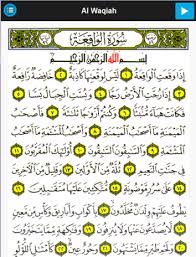 Al Waqiah
سُورَةُ الوَاقِعَةِ
بِسْمِ اللَّهِ الرَّحْمَٰنِ الرَّحِيمِ
إِذَا وَقَعَتِ ٱلْوَاقِعَةُ ١ لَيْسَ لِوَقْعَتِهَا كَاذِبَةٌ ٢ خَافِضَةٌ رَّافِعَةٌ
٣ إِذَا رُجَّتِ ٱلْأَرْضُ رَجًّا ٤ وَبُسَّتِ ٱلْجِبَالُ بَسًّا ٥
فَكَانَتْ هَبَآءً مُّنۢبَثًّا ٦ وَكُنتُمْ أَزْوَٰجًا ثَلَٰثَةً ٧ فَأَصْحَٰبُ
ٱلْمَيْمَنَةِ مَآ أَصْحَٰبُ ٱلْمَيْمَنَةِ ٨ وَأَصْحَٰبُ ٱلْمَشْـَٔمَةِ مَآ أَصْحَٰبُ
ٱلْمَشْـَٔمَةِ ٩ وَٱلسَّٰبِقُونَ ٱلسَّٰبِقُونَ ١٠ أُو۟لَٰٓئِكَ ٱلْمُقَرَّبُونَ ١١
فِى جَنَّٰتِ ٱلنَّعِيمِ ١٢ ثُلَّةٌ مِّنَ ٱلْأَوَّلِينَ ١٣ وَقَلِيلٌ مِّنَ ٱلْءَاخِرِينَ
١٤ عَلَىٰ سُرُرٍ مَّوْضُونَةٍ ١٥ مُّتَّكِـِٔينَ عَلَيْهَا مُتَقَٰبِلِينَ ١٦
يَطُوفُ عَلَيْهِمْ وِلْدَٰنٌ مُّخَلَّدُونَ ١٧ بِأَكْوَابٍ وَأَبَارِيقَ وَكَأْسٍ مِّن مَّعِينٍ
١٨ لَّا يُصَدَّعُونَ عَنْهَا وَلَا يُنزِفُونَ ١٩ وَفَٰكِهَةٍ مِّمَّا يَتَخَيَّرُونَ
٢٠ وَلَحْمِ طَيْرٍ مِّمَّا يَشْتَهُونَ ٢١ وَحُورٌ عِينٌ ٢٢ كَأَمْثَٰلِ ٱللُّؤْلُؤِ